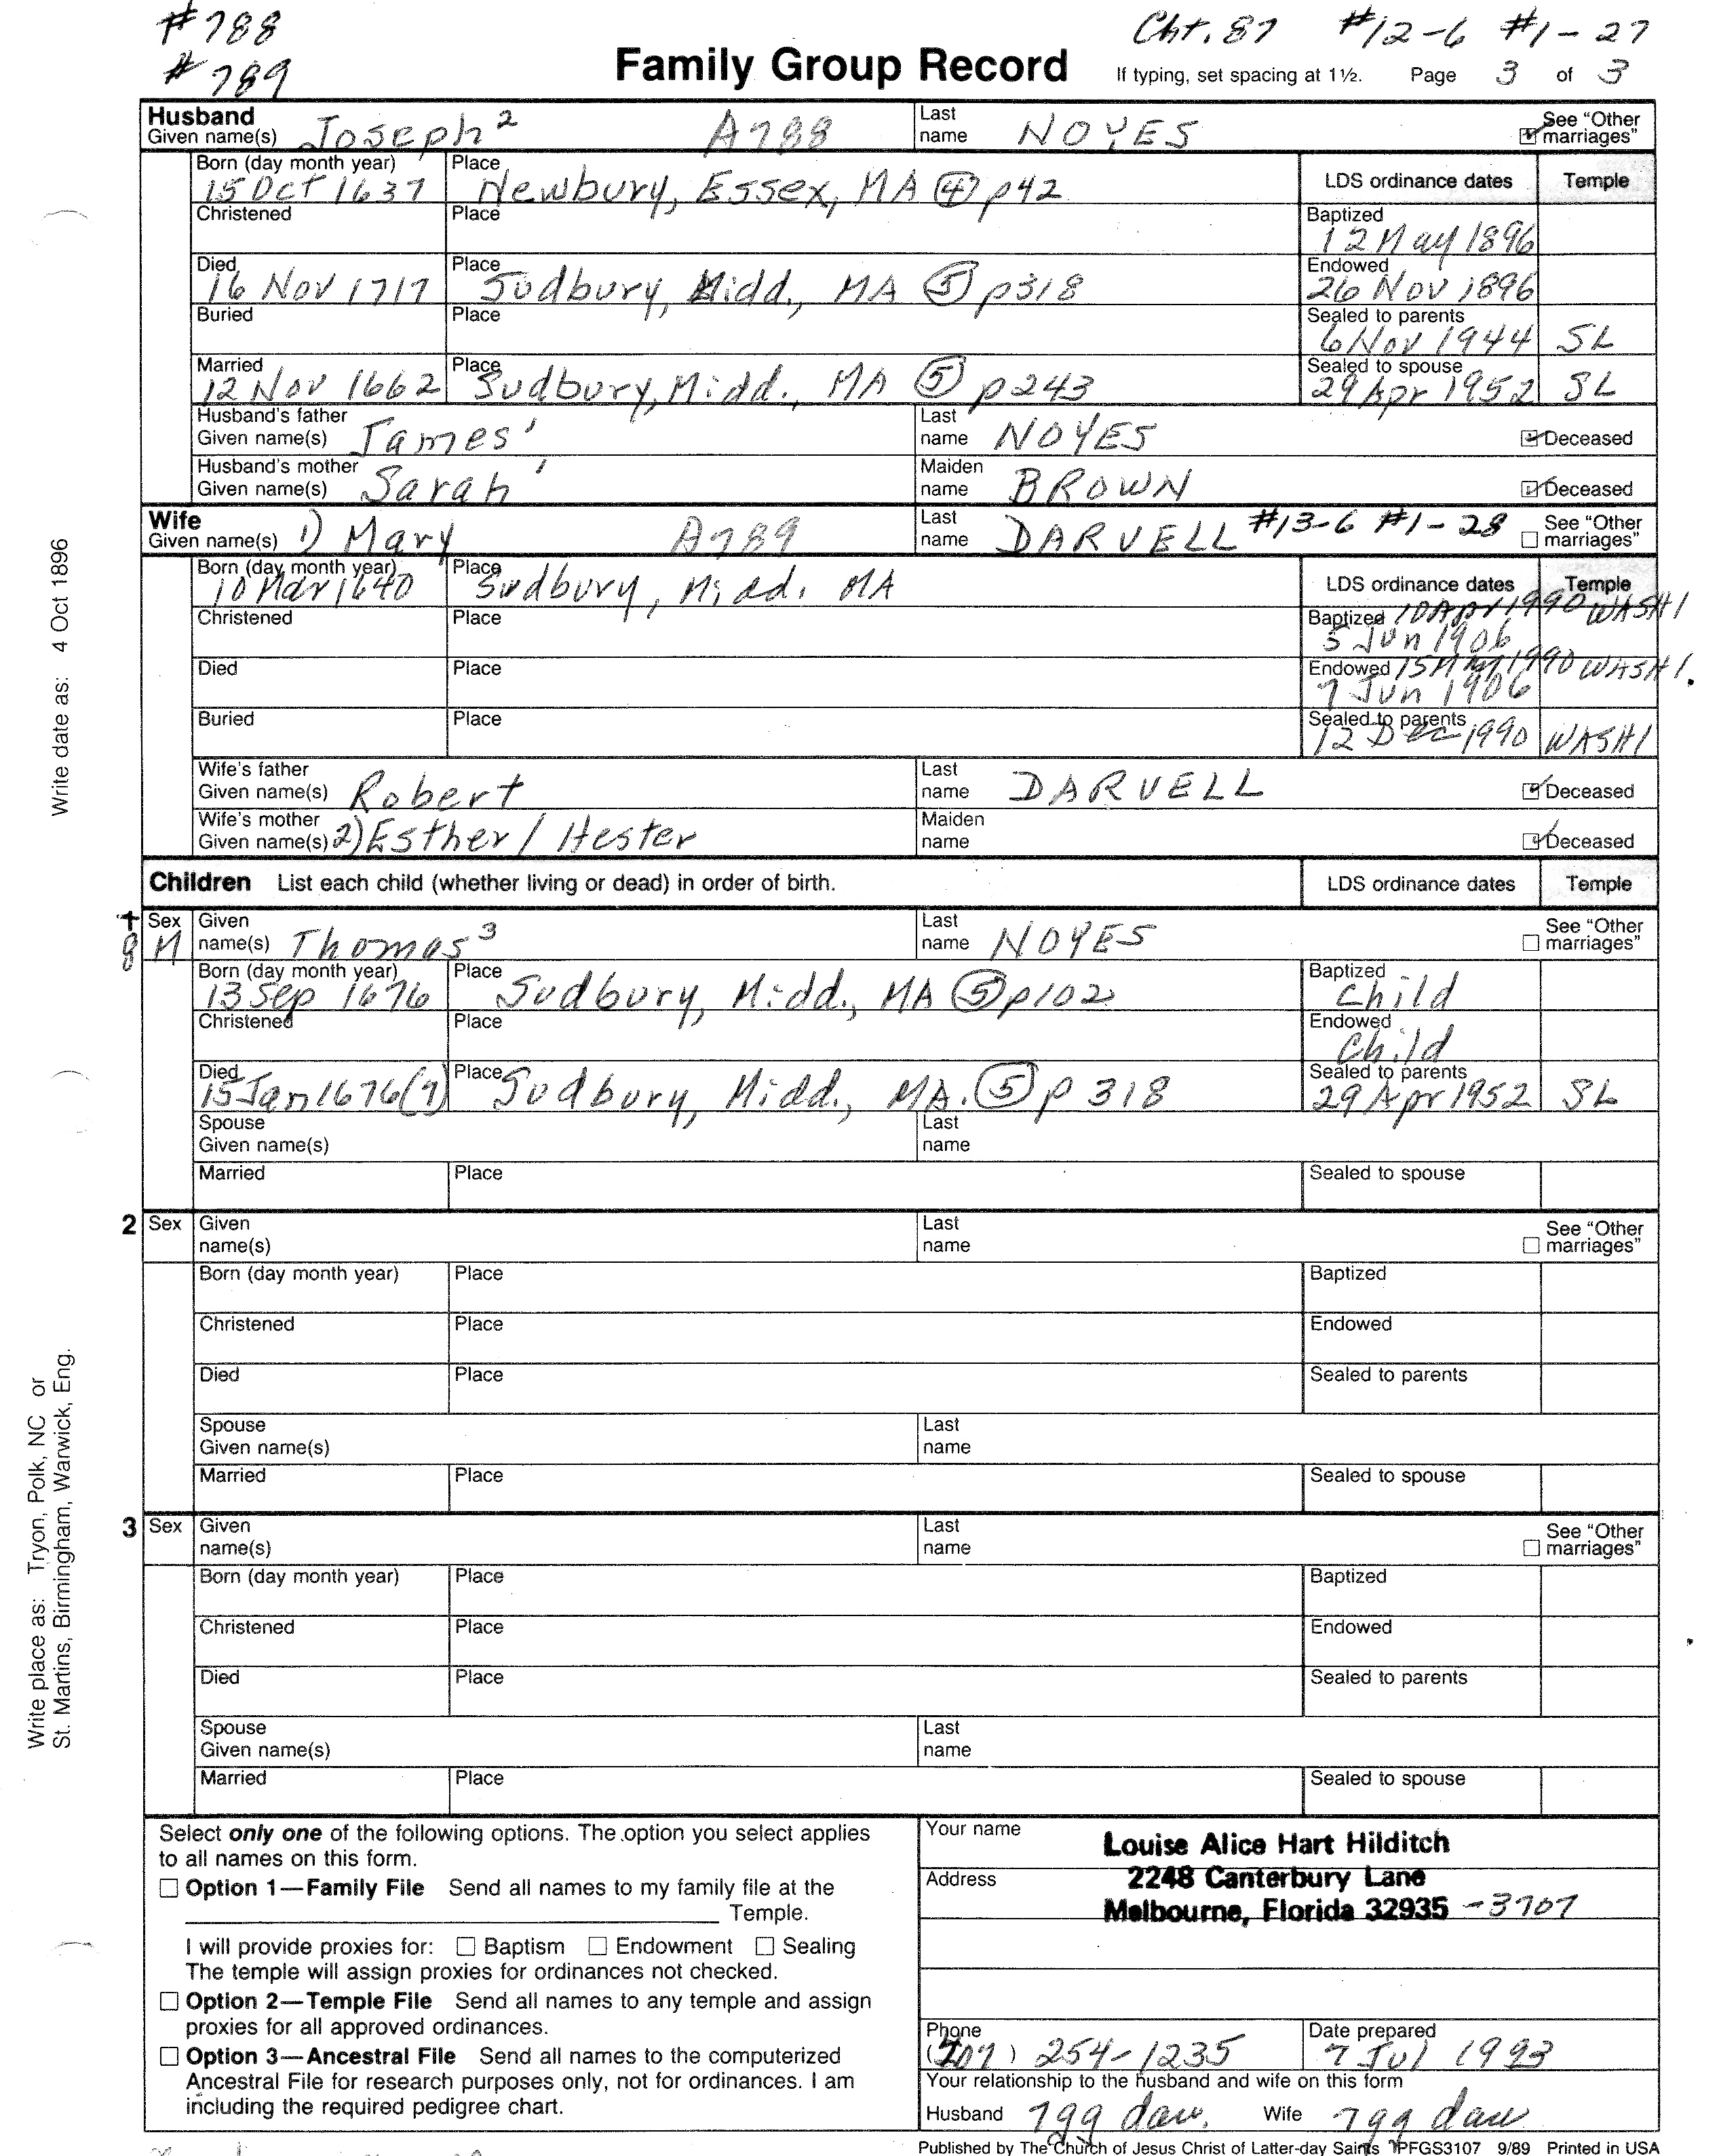 #788 Cht. 87 #12-6 #1-27
#789 Family Group Record If typing, set spacing at 1½. Page 3 of 3
Husband
Given name(s) Joseph² A788 Last name NOYES See "Other marriages"
Born (day month year) 15 Oct 1637 Place Newbury, Essex, MA ④ p42 LDS ordinance dates Temple
Christened Place Baptized 12 May 1896
Died 16 Nov 1717 Place Sudbury, Midd., MA ⑤ p318 Endowed 26 Nov 1896
Buried Place Sealed to parents 6 Nov 1944 SL
Married 12 Nov 1662 Place Sudbury, Midd., MA ⑤ p243 Sealed to spouse 29 Apr 1952 SL
Husband's father Given name(s) James¹ Last name NOYES Deceased
Husband's mother Given name(s) Sarah¹ Maiden name BROWN Deceased
Wife
Given name(s) 1) Mary A789 Last name DARVELL #13-6 #1-28 See "Other marriages"
Born (day month year) 10 Mar 1640 Place Sudbury, Midd. MA LDS ordinance dates Temple
Christened Place Baptized 10 Apr 1990 WASHI
5 Jun 1906
Died Place Endowed 15 May 1990 WASHI.
7 Jun 1906
Buried Place Sealed to parents 12 DEC 1990 WASHI
Wife's father Given name(s) Robert Last name DARVELL Deceased
Wife's mother Given name(s) 2) Esther / Hester Maiden name Deceased
Children List each child (whether living or dead) in order of birth. LDS ordinance dates Temple
8 Sex M Given name(s) Thomas³ Last name NOYES See "Other marriages"
Born (day month year) 13 Sep 1676 Place Sudbury, Midd., MA ⑤ p102 Baptized Child
Christened Place Endowed Child
Died 15 Jan 1676(7) Place Sudbury, Midd., MA. ⑤ p 318 Sealed to parents 29 Apr 1952 SL
Spouse Given name(s) Last name
Married Place Sealed to spouse
2 Sex Given name(s) Last name See "Other marriages"
Born (day month year) Place Baptized
Christened Place Endowed
Died Place Sealed to parents
Spouse Given name(s) Last name
Married Place Sealed to spouse
3 Sex Given name(s) Last name See "Other marriages"
Born (day month year) Place Baptized
Christened Place Endowed
Died Place Sealed to parents
Spouse Given name(s) Last name
Married Place Sealed to spouse
Write date as: 4 Oct 1896
Write place as: Tryon, Polk, NC or
St. Martins, Birmingham, Warwick, Eng.
Select only one of the following options. The option you select applies
to all names on this form.
Option 1—Family File Send all names to my family file at the
Temple.
I will provide proxies for: Baptism Endowment Sealing
The temple will assign proxies for ordinances not checked.
Option 2—Temple File Send all names to any temple and assign
proxies for all approved ordinances.
Option 3—Ancestral File Send all names to the computerized
Ancestral File for research purposes only, not for ordinances. I am
including the required pedigree chart.
Your name Louise Alice Hart Hilditch
Address 2248 Canterbury Lane
Melbourne, Florida 32935 -3707
Phone 254-1235 Date prepared 7 Jul 1993
Your relationship to the husband and wife on this form
Husband 7gg dau. Wife 7gg dau
Published by The Church of Jesus Christ of Latter-day Saints PFGS3107 9/89 Printed in USA